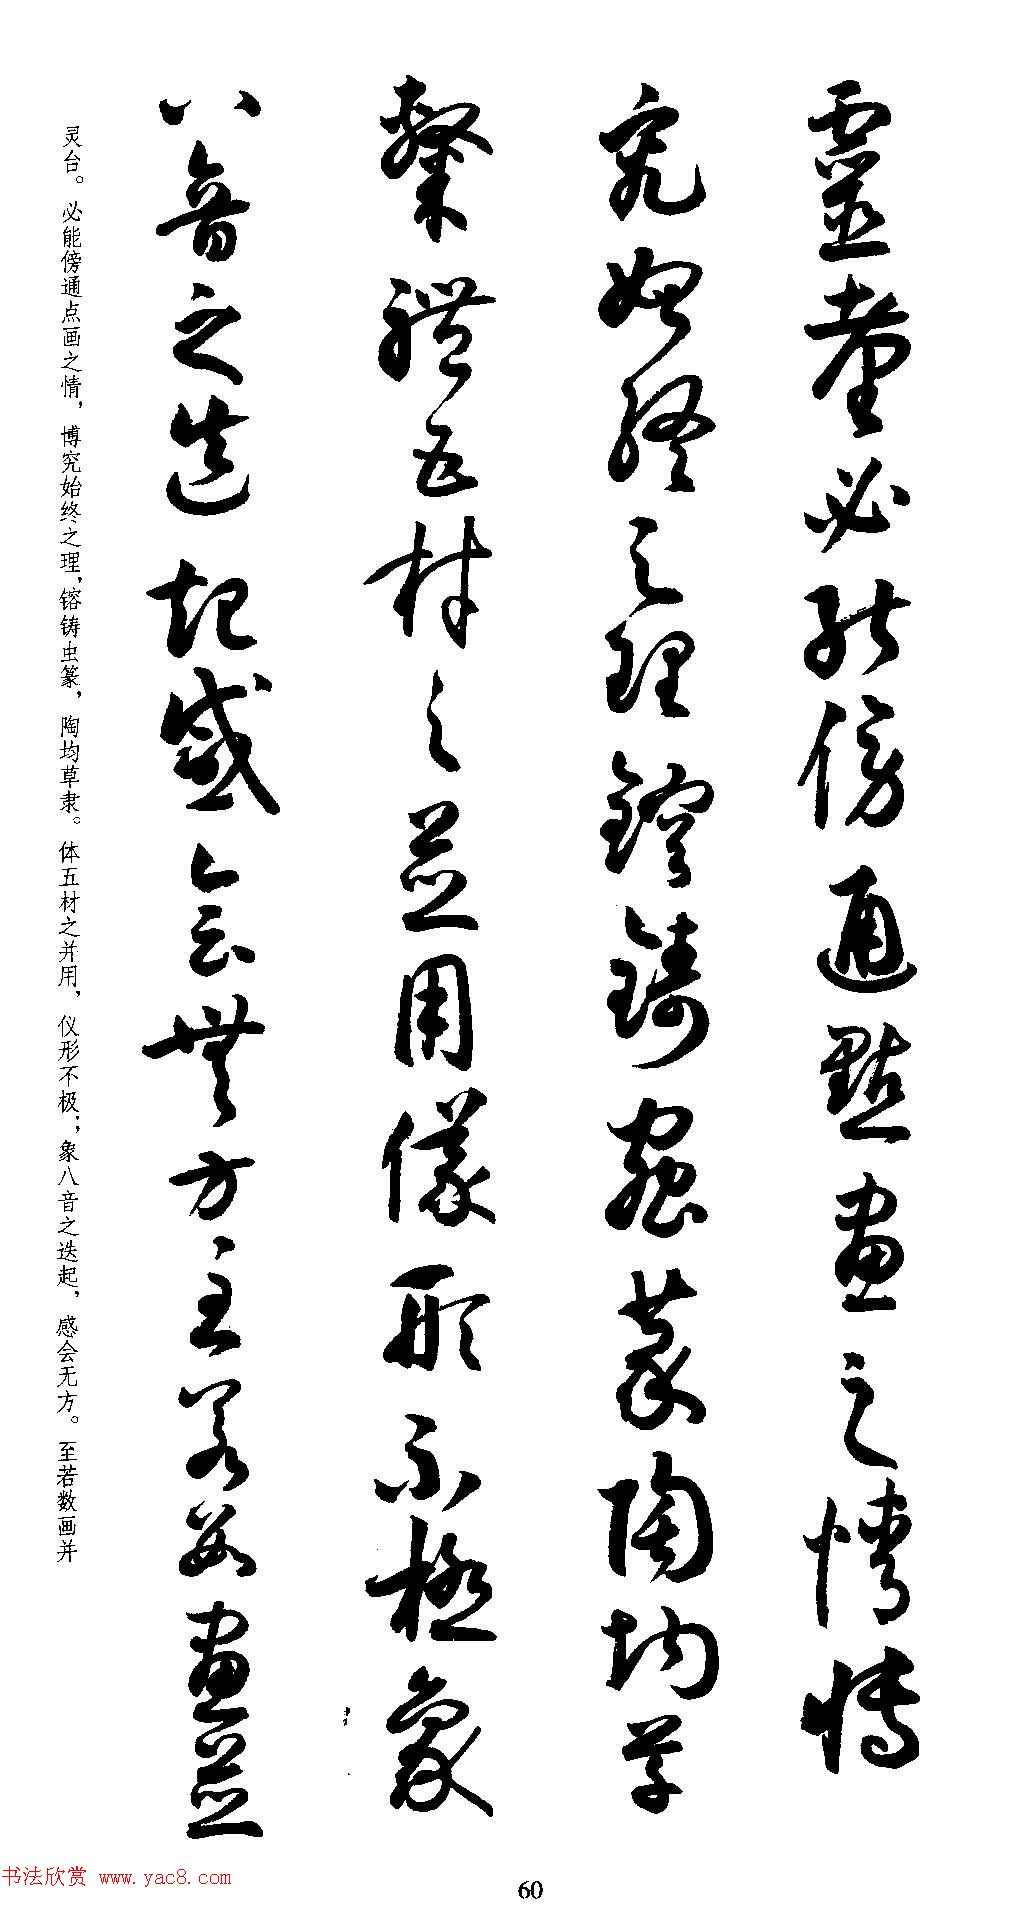 靈臺必能傍通點畫之情博
究始終之理鎔鑄蟲篆陶均草
隸體五材之並用儀形不極象
八音之迭起感會無方至若數畫並
灵台。必能傍通点画之情，博究始终之理，镕铸虫篆，陶均草隶。体五材之并用，仪形不极；象八音之迭起，感会无方。至若数画并
书法欣赏 www.yac8.com
60